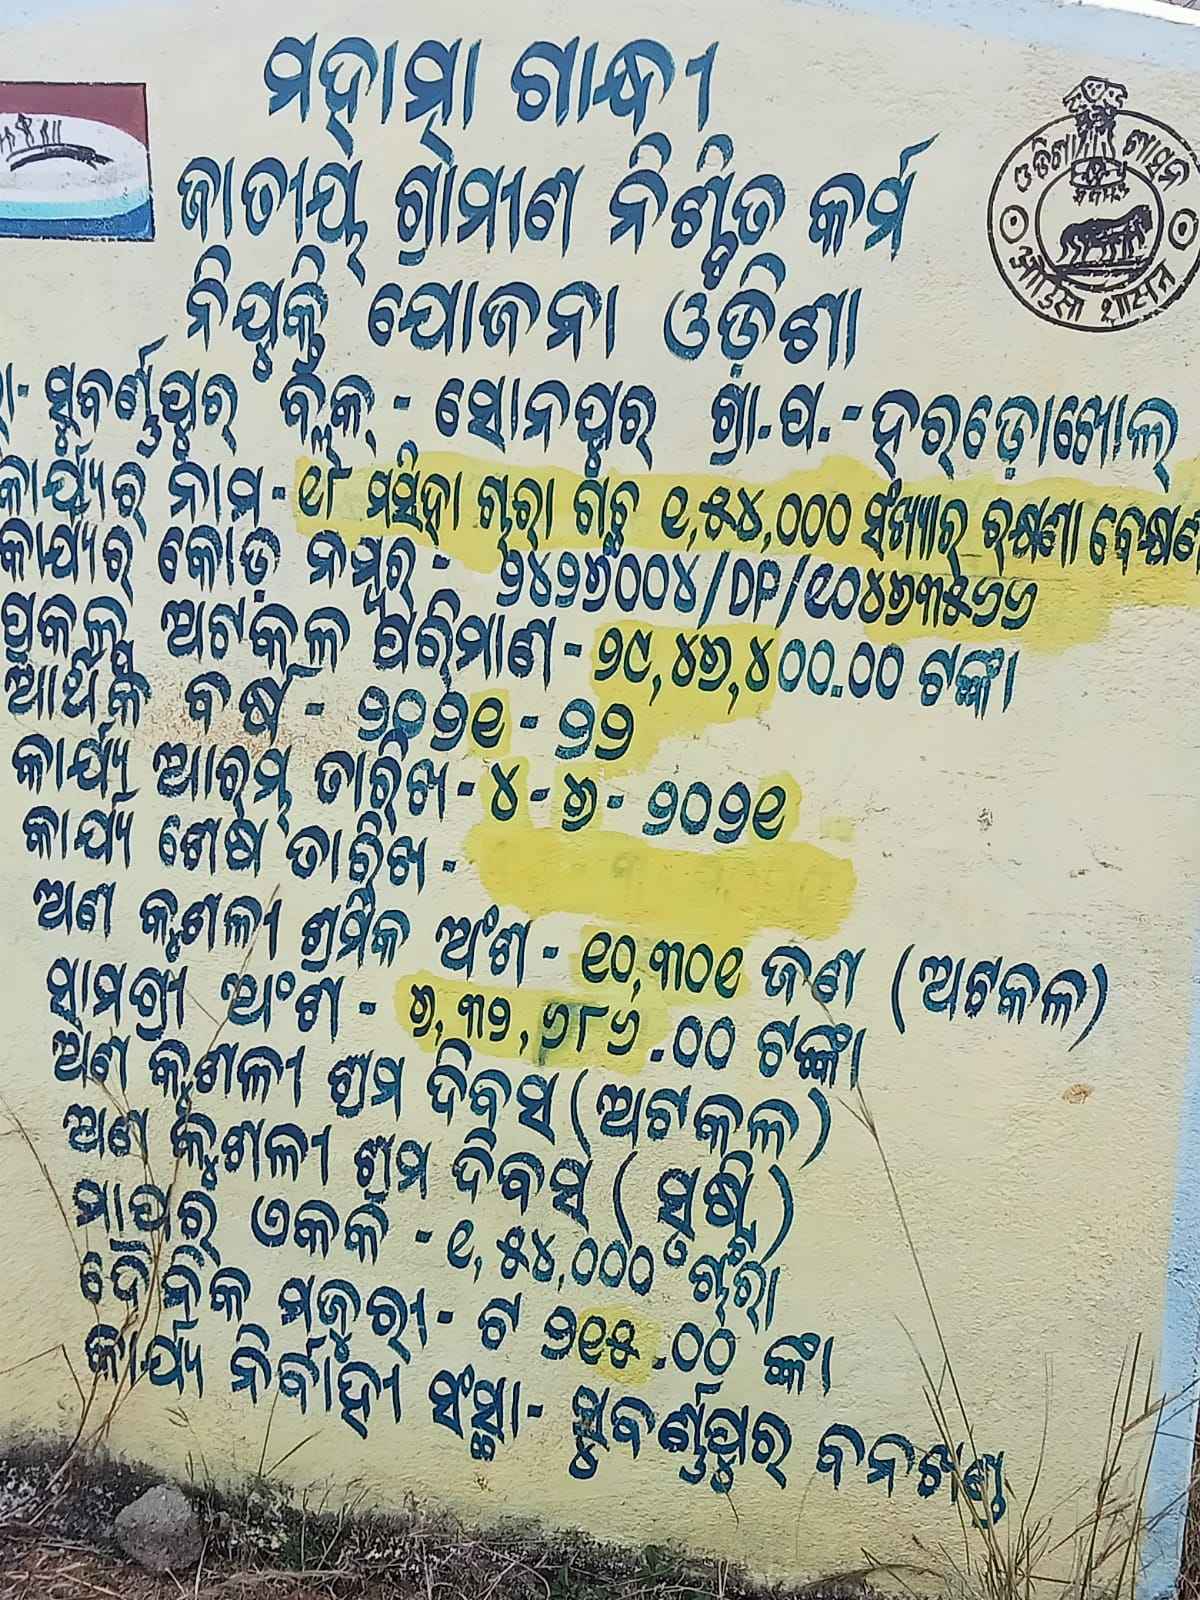 ମହାତ୍ମା ଗାନ୍ଧୀ
ଜାତୀୟ ଗ୍ରାମୀଣ ନିଶ୍ଚିତ କର୍ମ
ନିଯୁକ୍ତି ଯୋଜନା ଓଡ଼ିଶା
ଓଡିଶା ଶାସନ
ओडिसा शासन
ସୁବର୍ଣ୍ଣପୁର ବ୍ଲକ୍ - ସୋନପୁର ଗ୍ରା.ପ.-ହରଡ଼ୋଖୋଲ୍
କାର୍ଯ୍ୟର ନାମ-୧୮ ମସିହା ଚାରା ଗଚ୍ଛ ୧,୫୪,୦୦୦ ସଂଖ୍ୟାର ରକ୍ଷଣା ବେକ୍ଷଣ
କାର୍ଯ୍ୟର କୋଡ଼ ନମ୍ବର- ୨୪୨୬୦୦୪/DP/୧୦୪୬୩୫୬୬
ପ୍ରକଳ୍ପ ଅଟକଳ ପରିମାଣ-୨୯,୪୬,୪୦୦.୦୦ ଟଙ୍କା
ଆର୍ଥିକ ବର୍ଷ - ୨୦୨୧-୨୨
କାର୍ଯ୍ୟ ଆରମ୍ଭ ତାରିଖ-୪-୬-୨୦୨୧
କାର୍ଯ୍ୟ ଶେଷ ତାରିଖ-
ଅଣ କୁଶଳୀ ଶ୍ରମିକ ଅଂଶ-୧୦,୩୦୧ ଜଣ (ଅଟକଳ)
ସାମଗ୍ରୀ ଅଂଶ-୬,୩୨,୬୮୬.୦୦ ଟଙ୍କା
ଅଣ କୁଶଳୀ ଶ୍ରମ ଦିବସ(ଅଟକଳ)
ଅଣ କୁଶଳୀ ଶ୍ରମ ଦିବସ(ସୃଷ୍ଟି)
ମାପର ଏକକ -୧,୫୪,୦୦୦ ଚାରା
ଦୈନିକ ମଜୁରୀ- ଟ ୨୧୫.୦୦ ଙ୍କା
କାର୍ଯ୍ୟ ନିର୍ବାହୀ ସଂସ୍ଥା- ସୁବର୍ଣ୍ଣପୁର ବନଖଣ୍ଡ